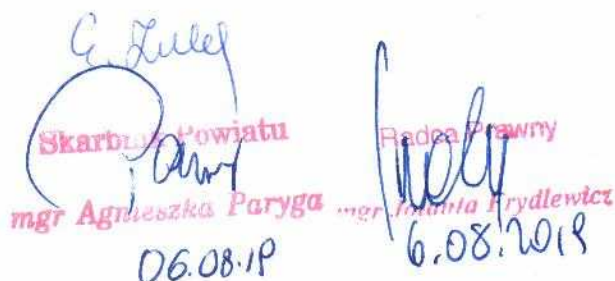 Skarbnik Powiatu
mgr Agnieszka Paryga
06.08.19
Radca Prawny
mgr Jolanta Frydlewicz
6.08.2019